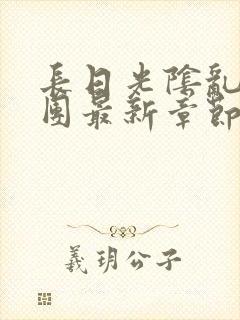 長日光陰亂
團最新章節
義玥公子